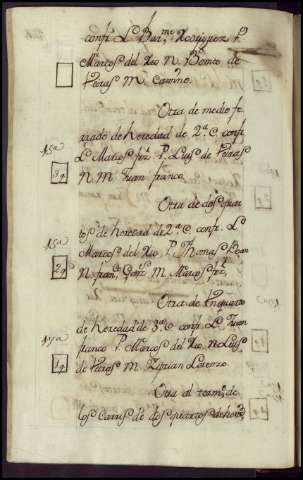 confr. L. Bar.me Rodriguez P.
Marcos del Rio N. Benito de
Paras M. Camino.
Otra de medio fe
rrado de heredad de 2.a C. confr.
L. Marcos frz P. Luis de Paras
N. M. Juan franco.
15a
3q
Otra de dos quar
tos de heredad de 2.a C. confr. L.
Marcos del Rio P. Thomas
N. fran.co M. Marcos frz.
15a
2q
Otra de un quarto
de heredad de 3.a C. confr. L. Juan
franco P. Marcos del Rio N. Luis
de Paras M. Ziprian Lorenzo.
1q
Otra al term.o de
los Carris de dos quartos de hered.